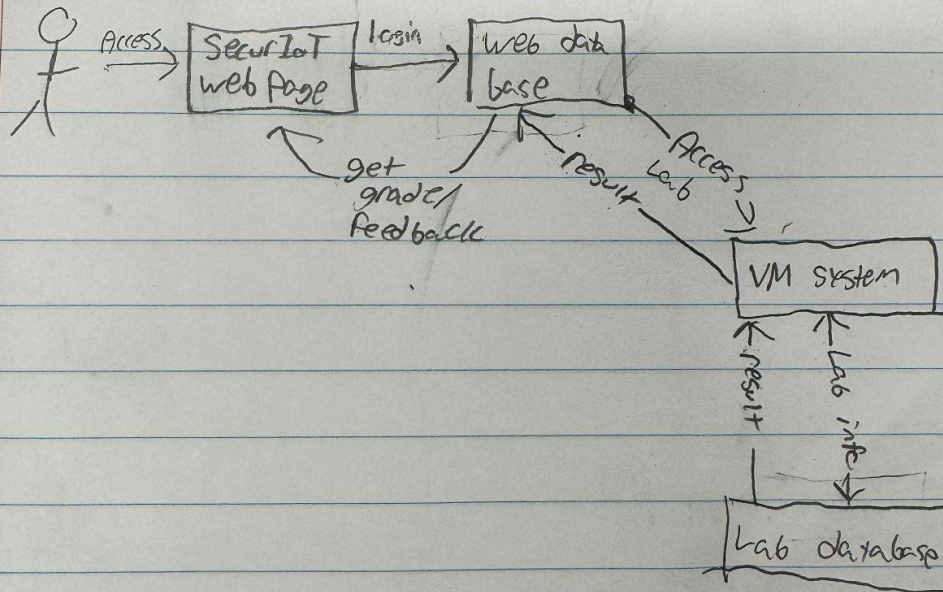 Access
SecurIoT
web Page
login
web data
base
get
grade/
feedback
result
Access
Lab
VM system
result
Lab info
Lab database